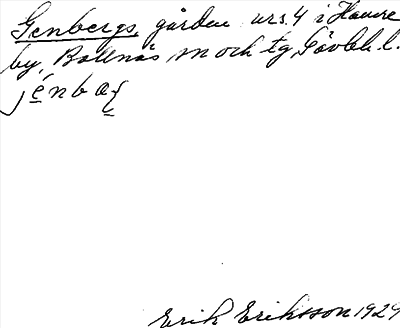 Genbergs, gården nrs. 4 i Havre
by, Bollnäs sn och tg, Gävleb. l.
jénbaʃ
Erik Eriksson 1929